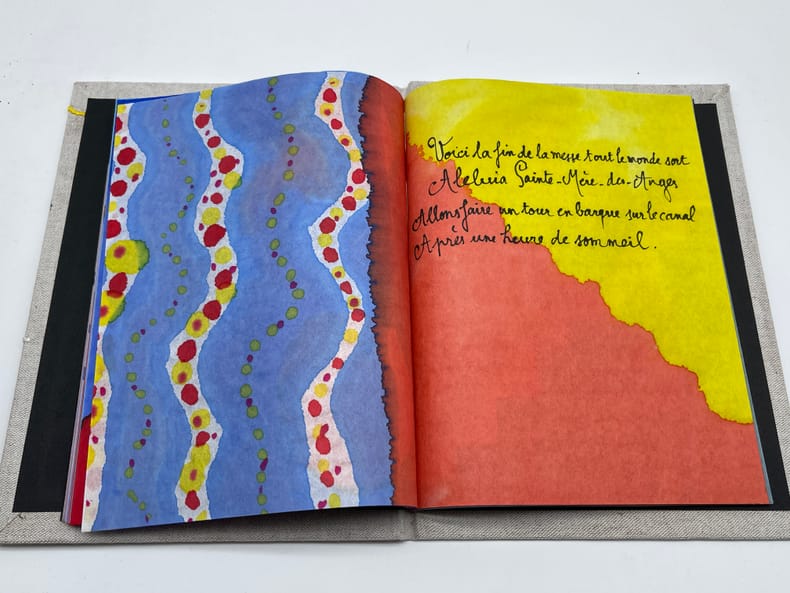 Voici la fin de la messe tout le monde sort
Aleluia Sainte-Mère-des-Anges
Allons faire un tour en barque sur le canal
Après une heure de sommeil.